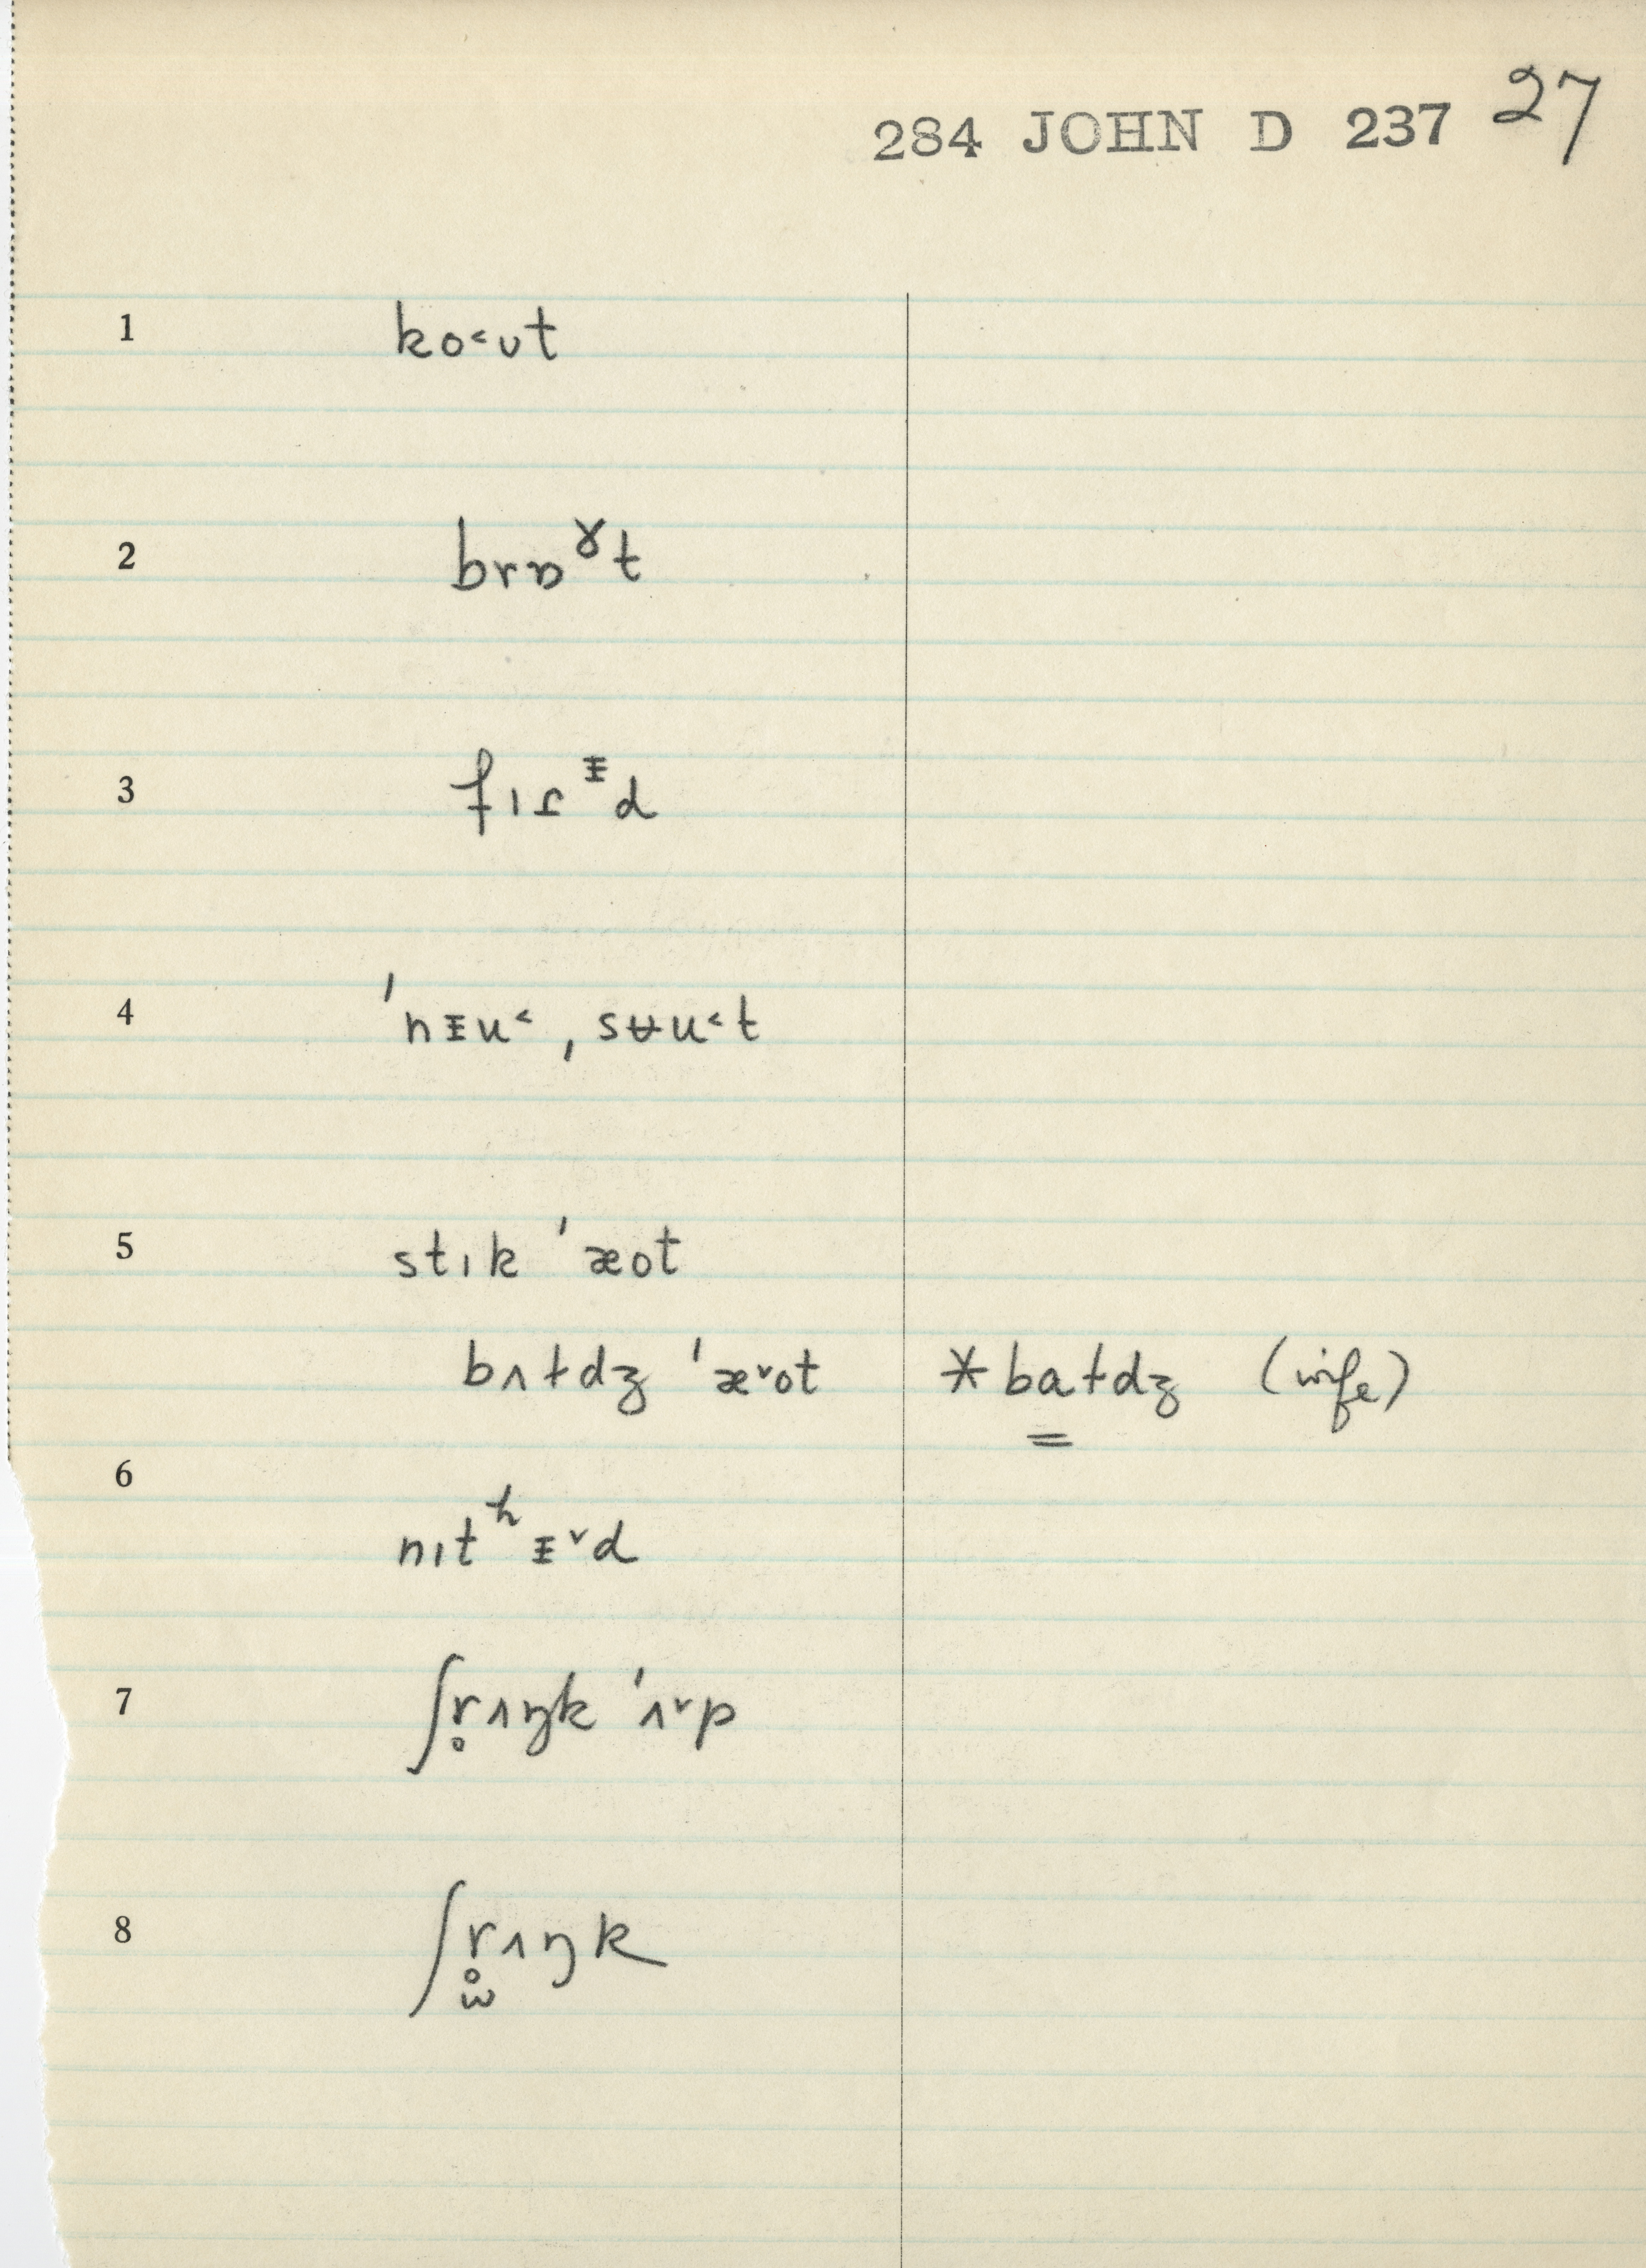 284 JOHN D 237 27
1 ko˂ʊt
2 brɒˠt
3 fɪɾᵻd
4 ˈnᵻu˂, sʉu˂t
5 stɪk ˈæot
bʌɫdʒ ˈæ˅ot *baɫdʒ (inf's)
6 nɪtʰᵻ˅d
7 ʃr̥ʌŋk ˈʌ˅p
8 ʃr̥̫ʌŋk